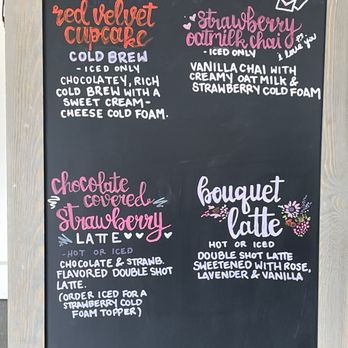 red velvet
cupcake
COLD BREW
- ICED ONLY
CHOCOLATEY, RICH
COLD BREW WITH A
SWEET CREAM-
CHEESE COLD FOAM.
strawberry
oatmilk chai
- ICED ONLY
i love you
VANILLA CHAI WITH
CREAMY OAT MILK &
STRAWBERRY COLD FOAM
chocolate
covered
strawberry
LATTE
- HOT OR ICED
CHOCOLATE & STRAWB.
FLAVORED DOUBLE SHOT
LATTE.
(ORDER ICED FOR A
STRAWBERRY COLD
FOAM TOPPER)
bouquet
latte
HOT OR ICED
DOUBLE SHOT LATTE
SWEETENED WITH ROSE,
LAVENDER & VANILLA